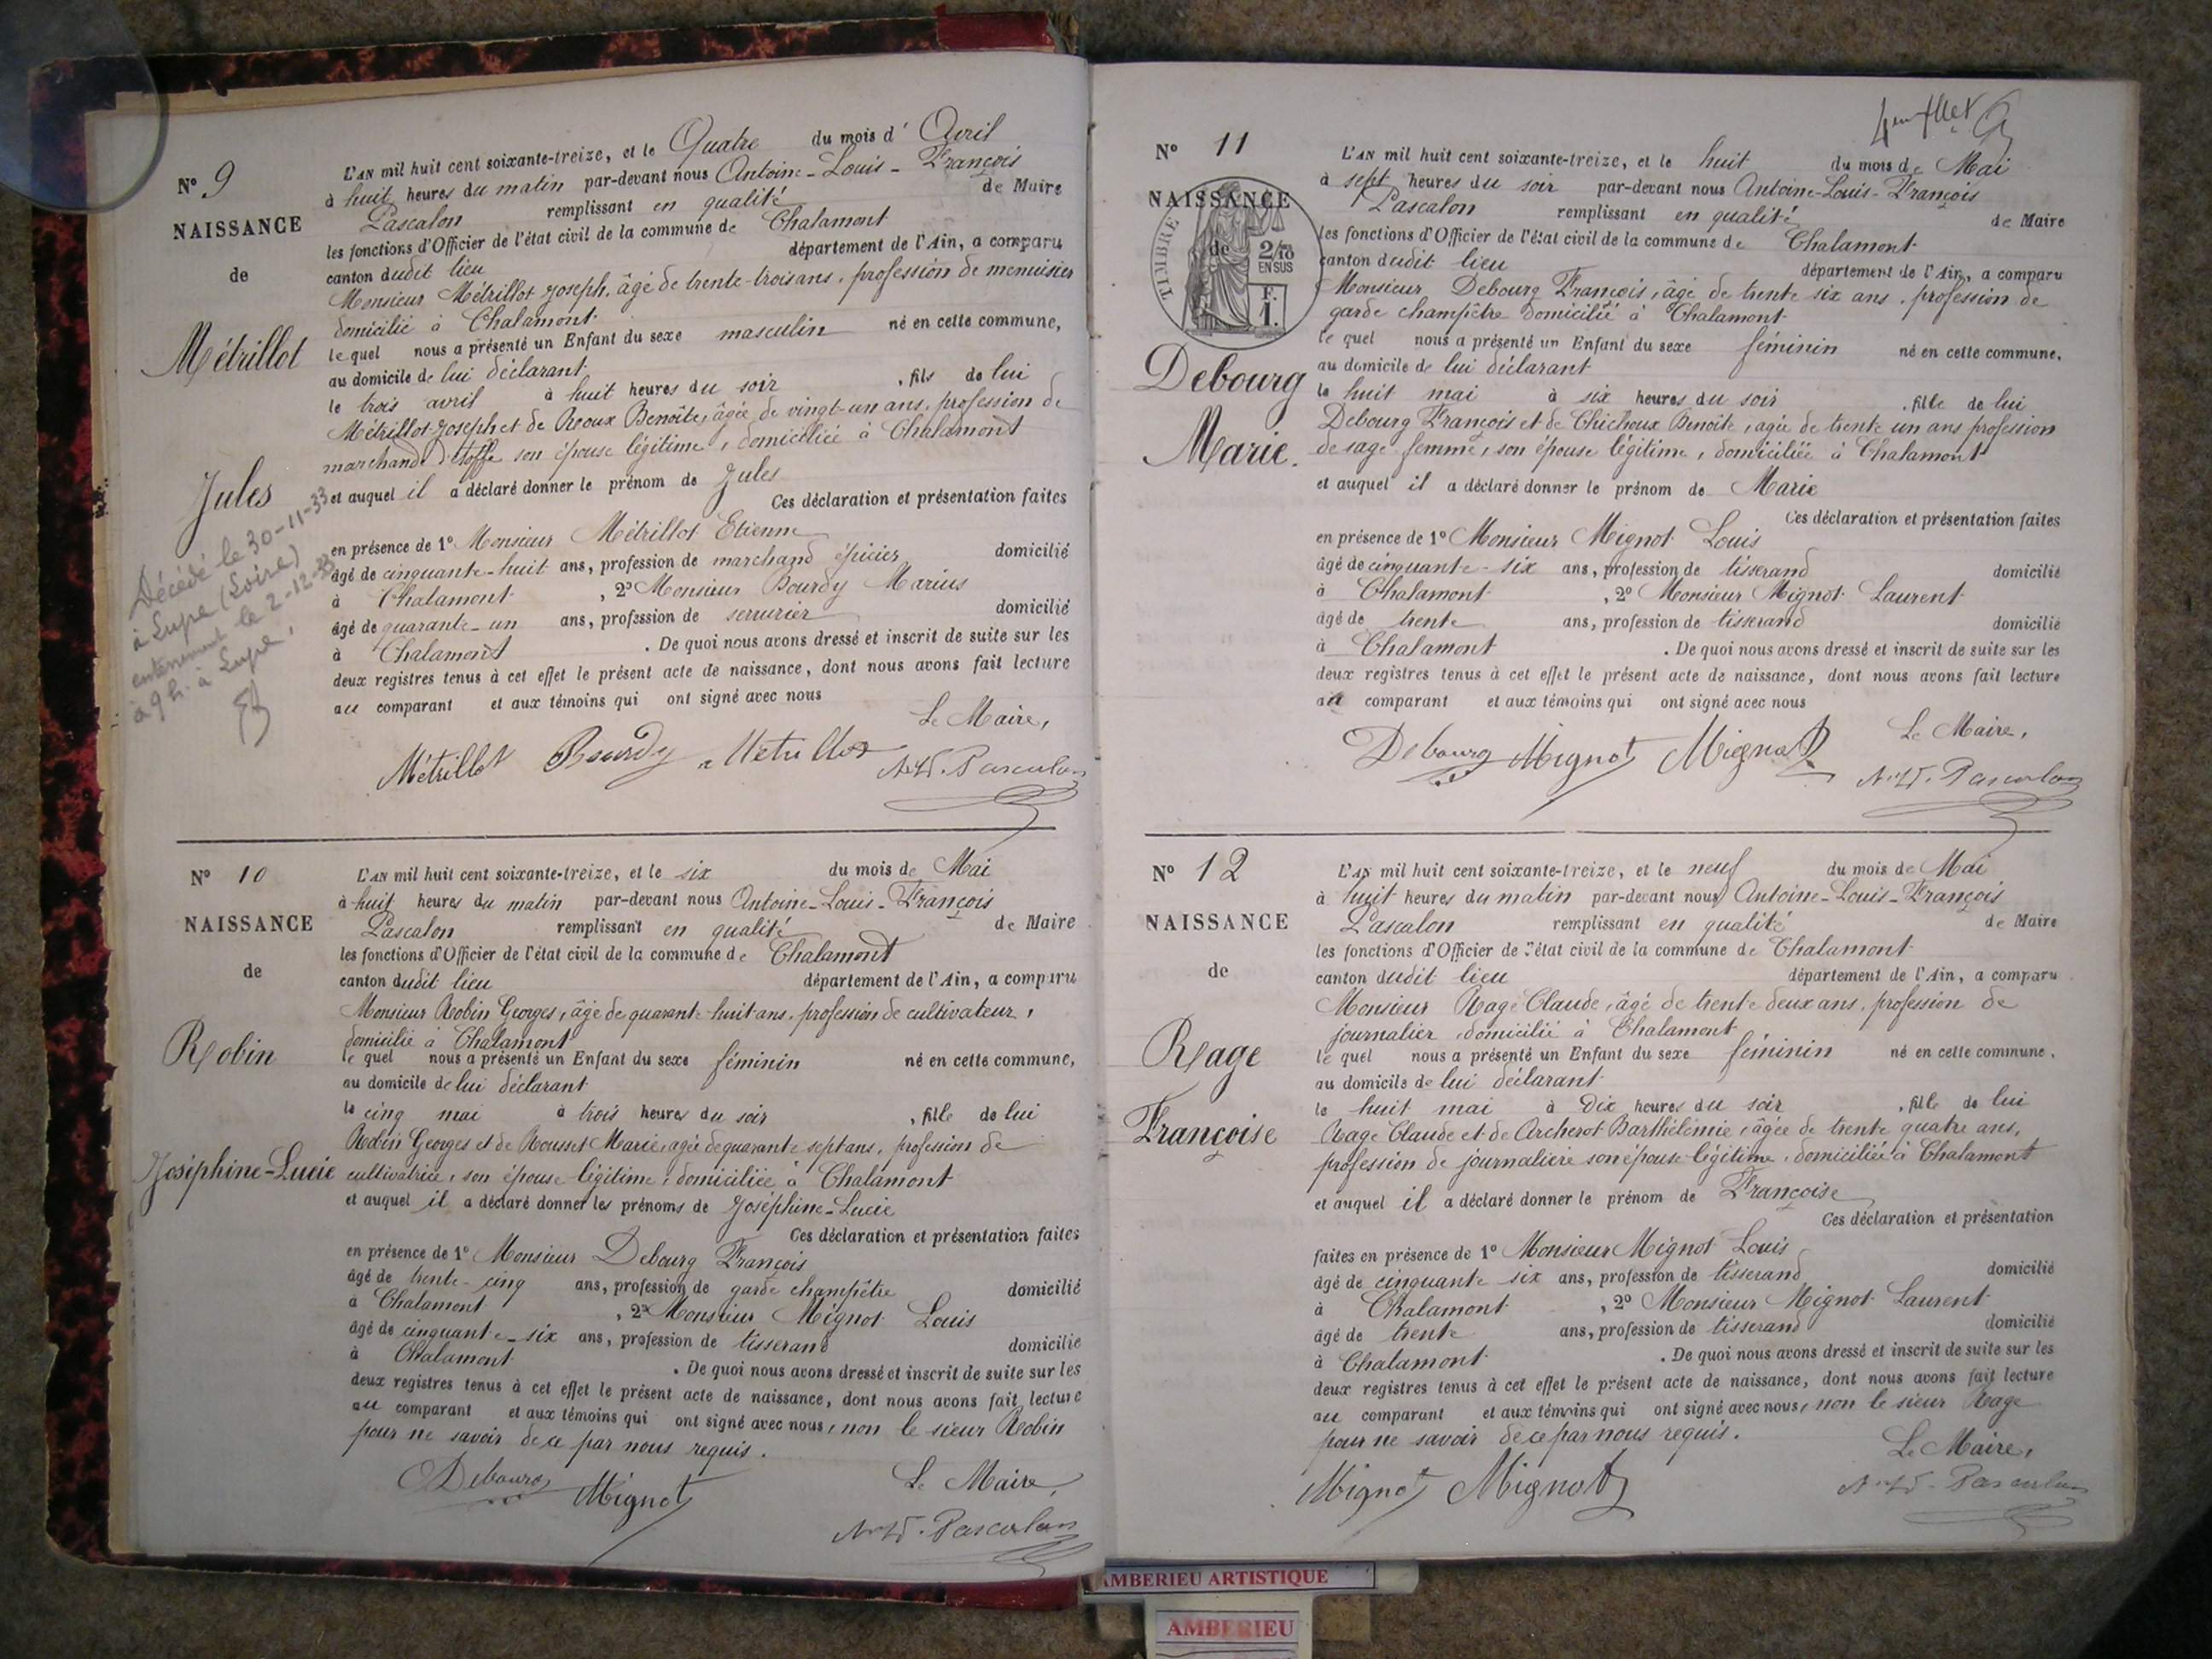 N° 9
NAISSANCE
de
Métrillot
Jules
Décédé le 30-11-33
à Lupé (Loire)
enterrement le 2-12-33
à 9 h. à Lupé.
L'AN mil huit cent soixante-treize, et le Quatre du mois d' Avril
à huit heures du matin par-devant nous Antoine-Louis-François
Pascalon remplissant en qualité de Maire
les fonctions d'Officier de l'état civil de la commune de Chalamont
canton dudit lieu département de l'Ain, a comparu
Monsieur Métrillot Joseph, âgé de trente-trois ans, profession de menuisier
domicilié à Chalamont
lequel nous a présenté un Enfant du sexe masculin né en cette commune,
au domicile de lui déclarant
le trois avril à huit heures du soir, fils de lui
Métrillot Joseph et de Roux Benoîte, âgée de vingt-un ans, profession de
marchande d'étoffe son épouse légitime, domiciliée à Chalamont
et auquel il a déclaré donner le prénom de Jules
Ces déclaration et présentation faites
en présence de 1° Monsieur Métrillot Etienne
âgé de cinquante-huit ans, profession de marchand épicier domicilié
à Chalamont, 2° Monsieur Bourdy Marius
âgé de quarante-un ans, profession de serrurier domicilié
à Chalamont. De quoi nous avons dressé et inscrit de suite sur les
deux registres tenus à cet effet le présent acte de naissance, dont nous avons fait lecture
au comparant et aux témoins qui ont signé avec nous
Le Maire,
Métrillot Bourdy Métrillot Pascalon
N° 10
NAISSANCE
de
Robin
Joséphine-Lucie
L'AN mil huit cent soixante-treize, et le six du mois de Mai
à huit heures du matin par-devant nous Antoine-Louis-François
Pascalon remplissant en qualité de Maire
les fonctions d'Officier de l'état civil de la commune de Chalamont
canton dudit lieu département de l'Ain, a comparu
Monsieur Robin Georges, âgé de quarante-huit ans, profession de cultivateur,
domicilié à Chalamont
lequel nous a présenté un Enfant du sexe féminin né en cette commune,
au domicile de lui déclarant
le cinq mai à trois heures du soir, fille de lui
Robin Georges et de Rousset Marie, agée de quarante sept ans, profession de
cultivatrice, son épouse légitime, domiciliée à Chalamont
et auquel il a déclaré donner les prénoms de Joséphine-Lucie
Ces déclaration et présentation faites
en présence de 1° Monsieur Debourg François
âgé de trente-cinq ans, profession de garde champêtre domicilié
à Chalamont, 2° Monsieur Mignot Louis
âgé de cinquante-six ans, profession de tisserand domicilié
à Chalamont. De quoi nous avons dressé et inscrit de suite sur les
deux registres tenus à cet effet le présent acte de naissance, dont nous avons fait lecture
au comparant et aux témoins qui ont signé avec nous, non le sieur Robin
pour ne savoir de ce par nous requis.
Debourg Mignot Le Maire,
Pascalon
N° 11
NAISSANCE
de
TIMBRE
2/10
EN SUS
F.
1.
Debourg
Marie.
L'AN mil huit cent soixante-treize, et le huit du mois de Mai
à sept heures du soir par-devant nous Antoine-Louis-François
Pascalon remplissant en qualité de Maire
les fonctions d'Officier de l'état civil de la commune de Chalamont
canton dudit lieu département de l'Ain, a comparu
Monsieur Debourg François, âgé de trente six ans, profession de
garde champêtre domicilié à Chalamont
lequel nous a présenté un Enfant du sexe féminin né en cette commune,
au domicile de lui déclarant
le huit mai à six heures du soir, fille de lui
Debourg François et de Chichoux Benoîte, agée de trente un ans profession
de sage femme, son épouse légitime, domiciliée à Chalamont
et auquel il a déclaré donner le prénom de Marie
Ces déclaration et présentation faites
en présence de 1° Monsieur Mignot Louis
âgé de cinquante-six ans, profession de tisserand domicilié
à Chalamont, 2° Monsieur Mignot Laurent
âgé de trente ans, profession de tisserand domicilié
à Chalamont. De quoi nous avons dressé et inscrit de suite sur les
deux registres tenus à cet effet le présent acte de naissance, dont nous avons fait lecture
au comparant et aux témoins qui ont signé avec nous
Le Maire,
Debourg Mignot Mignot Pascalon
N° 12
NAISSANCE
de
Rage
Françoise
L'AN mil huit cent soixante-treize, et le neuf du mois de Mai
à huit heures du matin par-devant nous Antoine-Louis-François
Pascalon remplissant en qualité de Maire
les fonctions d'Officier de l'état civil de la commune de Chalamont
canton dudit lieu département de l'Ain, a comparu
Monsieur Rage Claude, âgé de trente deux ans, profession de
journalier, domicilié à Chalamont
lequel nous a présenté un Enfant du sexe féminin né en cette commune,
au domicile de lui déclarant
le huit mai à dix heures du soir, fille de lui
Rage Claude et de Archerot Barthélémie, âgée de trente quatre ans,
profession de journalière son épouse légitime, domiciliée à Chalamont
et auquel il a déclaré donner le prénom de Françoise
Ces déclaration et présentation
faites en présence de 1° Monsieur Mignot Louis
âgé de cinquante six ans, profession de tisserand domicilié
à Chalamont, 2° Monsieur Mignot Laurent
âgé de trente ans, profession de tisserand domicilié
à Chalamont. De quoi nous avons dressé et inscrit de suite sur les
deux registres tenus à cet effet le présent acte de naissance, dont nous avons fait lecture
au comparant et aux témoins qui ont signé avec nous, non le sieur Rage
pour ne savoir de ce par nous requis.
Le Maire,
Mignot Mignot Pascalon
AMBERIEU ARTISTIQUE
AMBERIEU